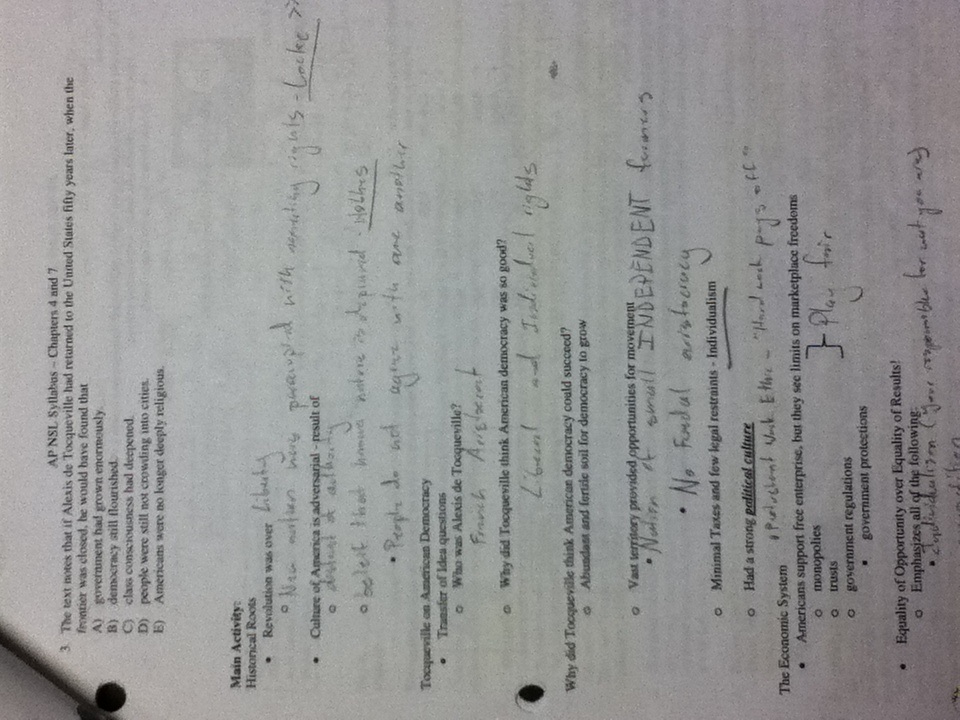 AP NSL Syllabus – Chapters 4 and 7
3. The text notes that if Alexis de Tocqueville had returned to the United States fifty years later, when the
frontier was closed, he would have found that
A) government had grown enormously.
B) democracy still flourished.
C) class consciousness had deepened.
D) people were still not crowding into cities.
E) Americans were no longer deeply religious.
Main Activity:
Historical Roots
• Revolution was over Liberty
○ New nation were with rights - Locke >>
• Culture of America is adversarial - result of
○ distrust of authority
○ belief that human nature is depraved - Hobbes
▪ People do not agree with one another
Tocqueville on American Democracy
• Transfer of Idea questions
○ Who was Alexis de Tocqueville?
French Aristocrat
○ Why did Tocqueville think American democracy was so good?
Liberal and Individual rights
Why did Tocqueville think American democracy could succeed?
○ Abundant and fertile soil for democracy to grow
○ Vast territory provided opportunities for movement
• Nation of small INDEPENDENT farmers
• No Feudal aristocracy
○ Minimal Taxes and few legal restraints - Individualism
○ Had a strong political culture
• Protestant Work Ethic - "Hard work pays off"
The Economic System
• Americans support free enterprise, but they see limits on marketplace freedoms
○ monopolies
○ trusts } Play fair
○ government regulations
▪ government protections
• Equality of Opportunity over Equality of Results!
○ Emphasizes all of the following:
▪ Individualism (your responsible for what you are)